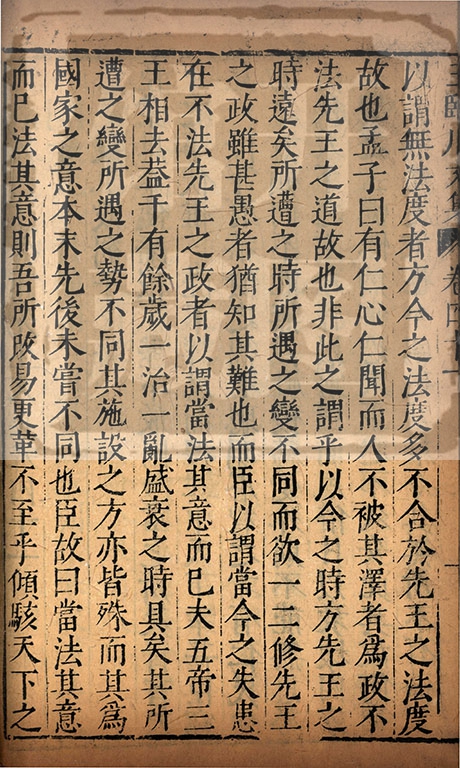 王臨川文集 卷四十一
以謂無法度者方今之法度多不合於先王之法度
故也孟子曰有仁心仁聞而人不被其澤者爲政不
法先王之道故也非此之謂乎以今之時方先王之
時遠矣所遭之時所遇之變不同而欲一二修先王
之政雖甚愚者猶知其難也而臣以謂當今之失患
在不法先王之政者以謂當法其意而已夫五帝三
王相去葢千有餘歲一治一亂盛衰之時具矣其所
遭之變所遇之勢不同其施設之方亦皆殊而其爲
國家之意本末先後未嘗不同也臣故曰當法其意
而已法其意則吾所改易更革不至乎傾駭天下之